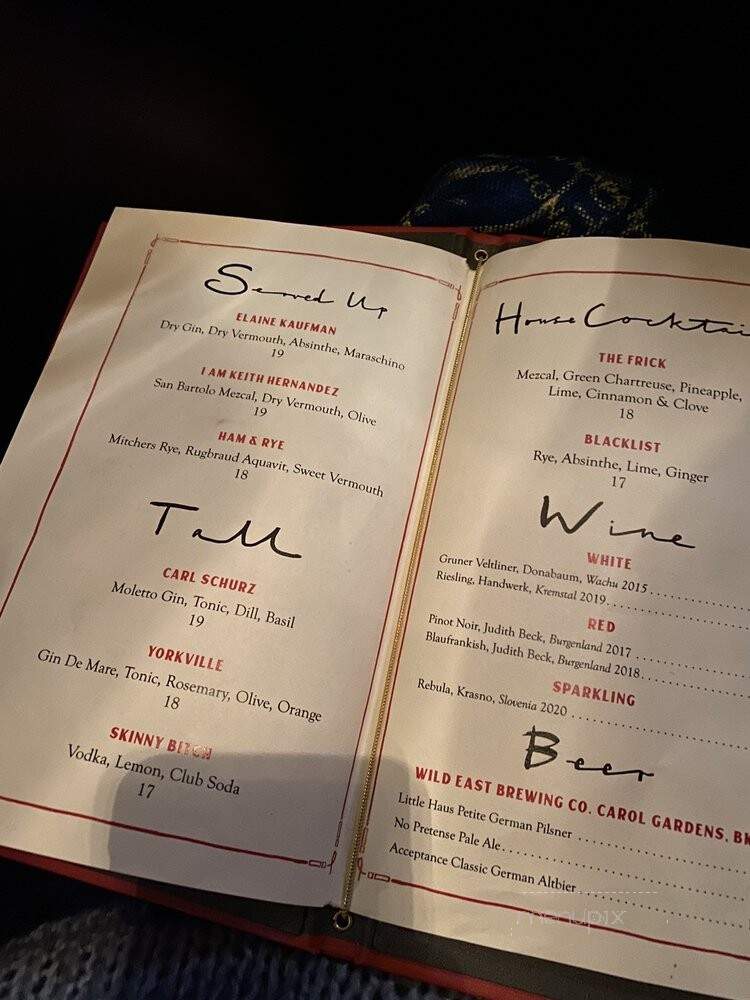 Served Up
ELAINE KAUFMAN
Dry Gin, Dry Vermouth, Absinthe, Maraschino
19
I AM KEITH HERNANDEZ
San Bartolo Mezcal, Dry Vermouth, Olive
19
HAM & RYE
Mitchers Rye, Rugbraud Aquavit, Sweet Vermouth
18
Tall
CARL SCHURZ
Moletto Gin, Tonic, Dill, Basil
19
YORKVILLE
Gin De Mare, Tonic, Rosemary, Olive, Orange
18
SKINNY BITCH
Vodka, Lemon, Club Soda
17
House Cocktai
THE FRICK
Mezcal, Green Chartreuse, Pineapple,
Lime, Cinnamon & Clove
18
BLACKLIST
Rye, Absinthe, Lime, Ginger
17
Wine
WHITE
Gruner Veltliner, Donabaum, Wachu 2015
Riesling, Handwerk, Kremstal 2019
RED
Pinot Noir, Judith Beck, Burgenland 2017
Blaufrankish, Judith Beck, Burgenland 2018
SPARKLING
Rebula, Krasno, Slovenia 2020
Beer
WILD EAST BREWING CO. CAROL GARDENS, BK
Little Haus Petite German Pilsner
No Pretense Pale Ale
Acceptance Classic German Altbier
menupix